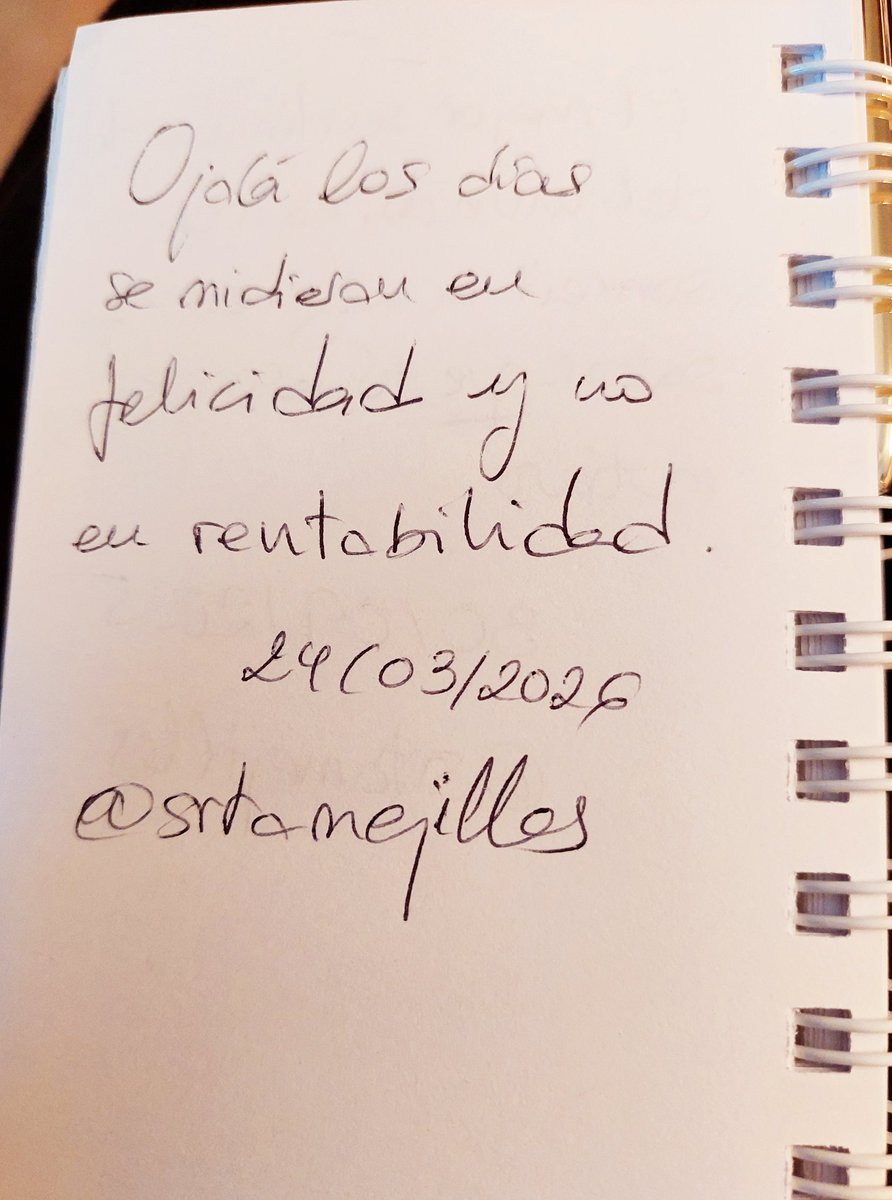 Ojalá los días
se midieran en
felicidad y no
en rentabilidad.
24/03/2026
@srtamejillas